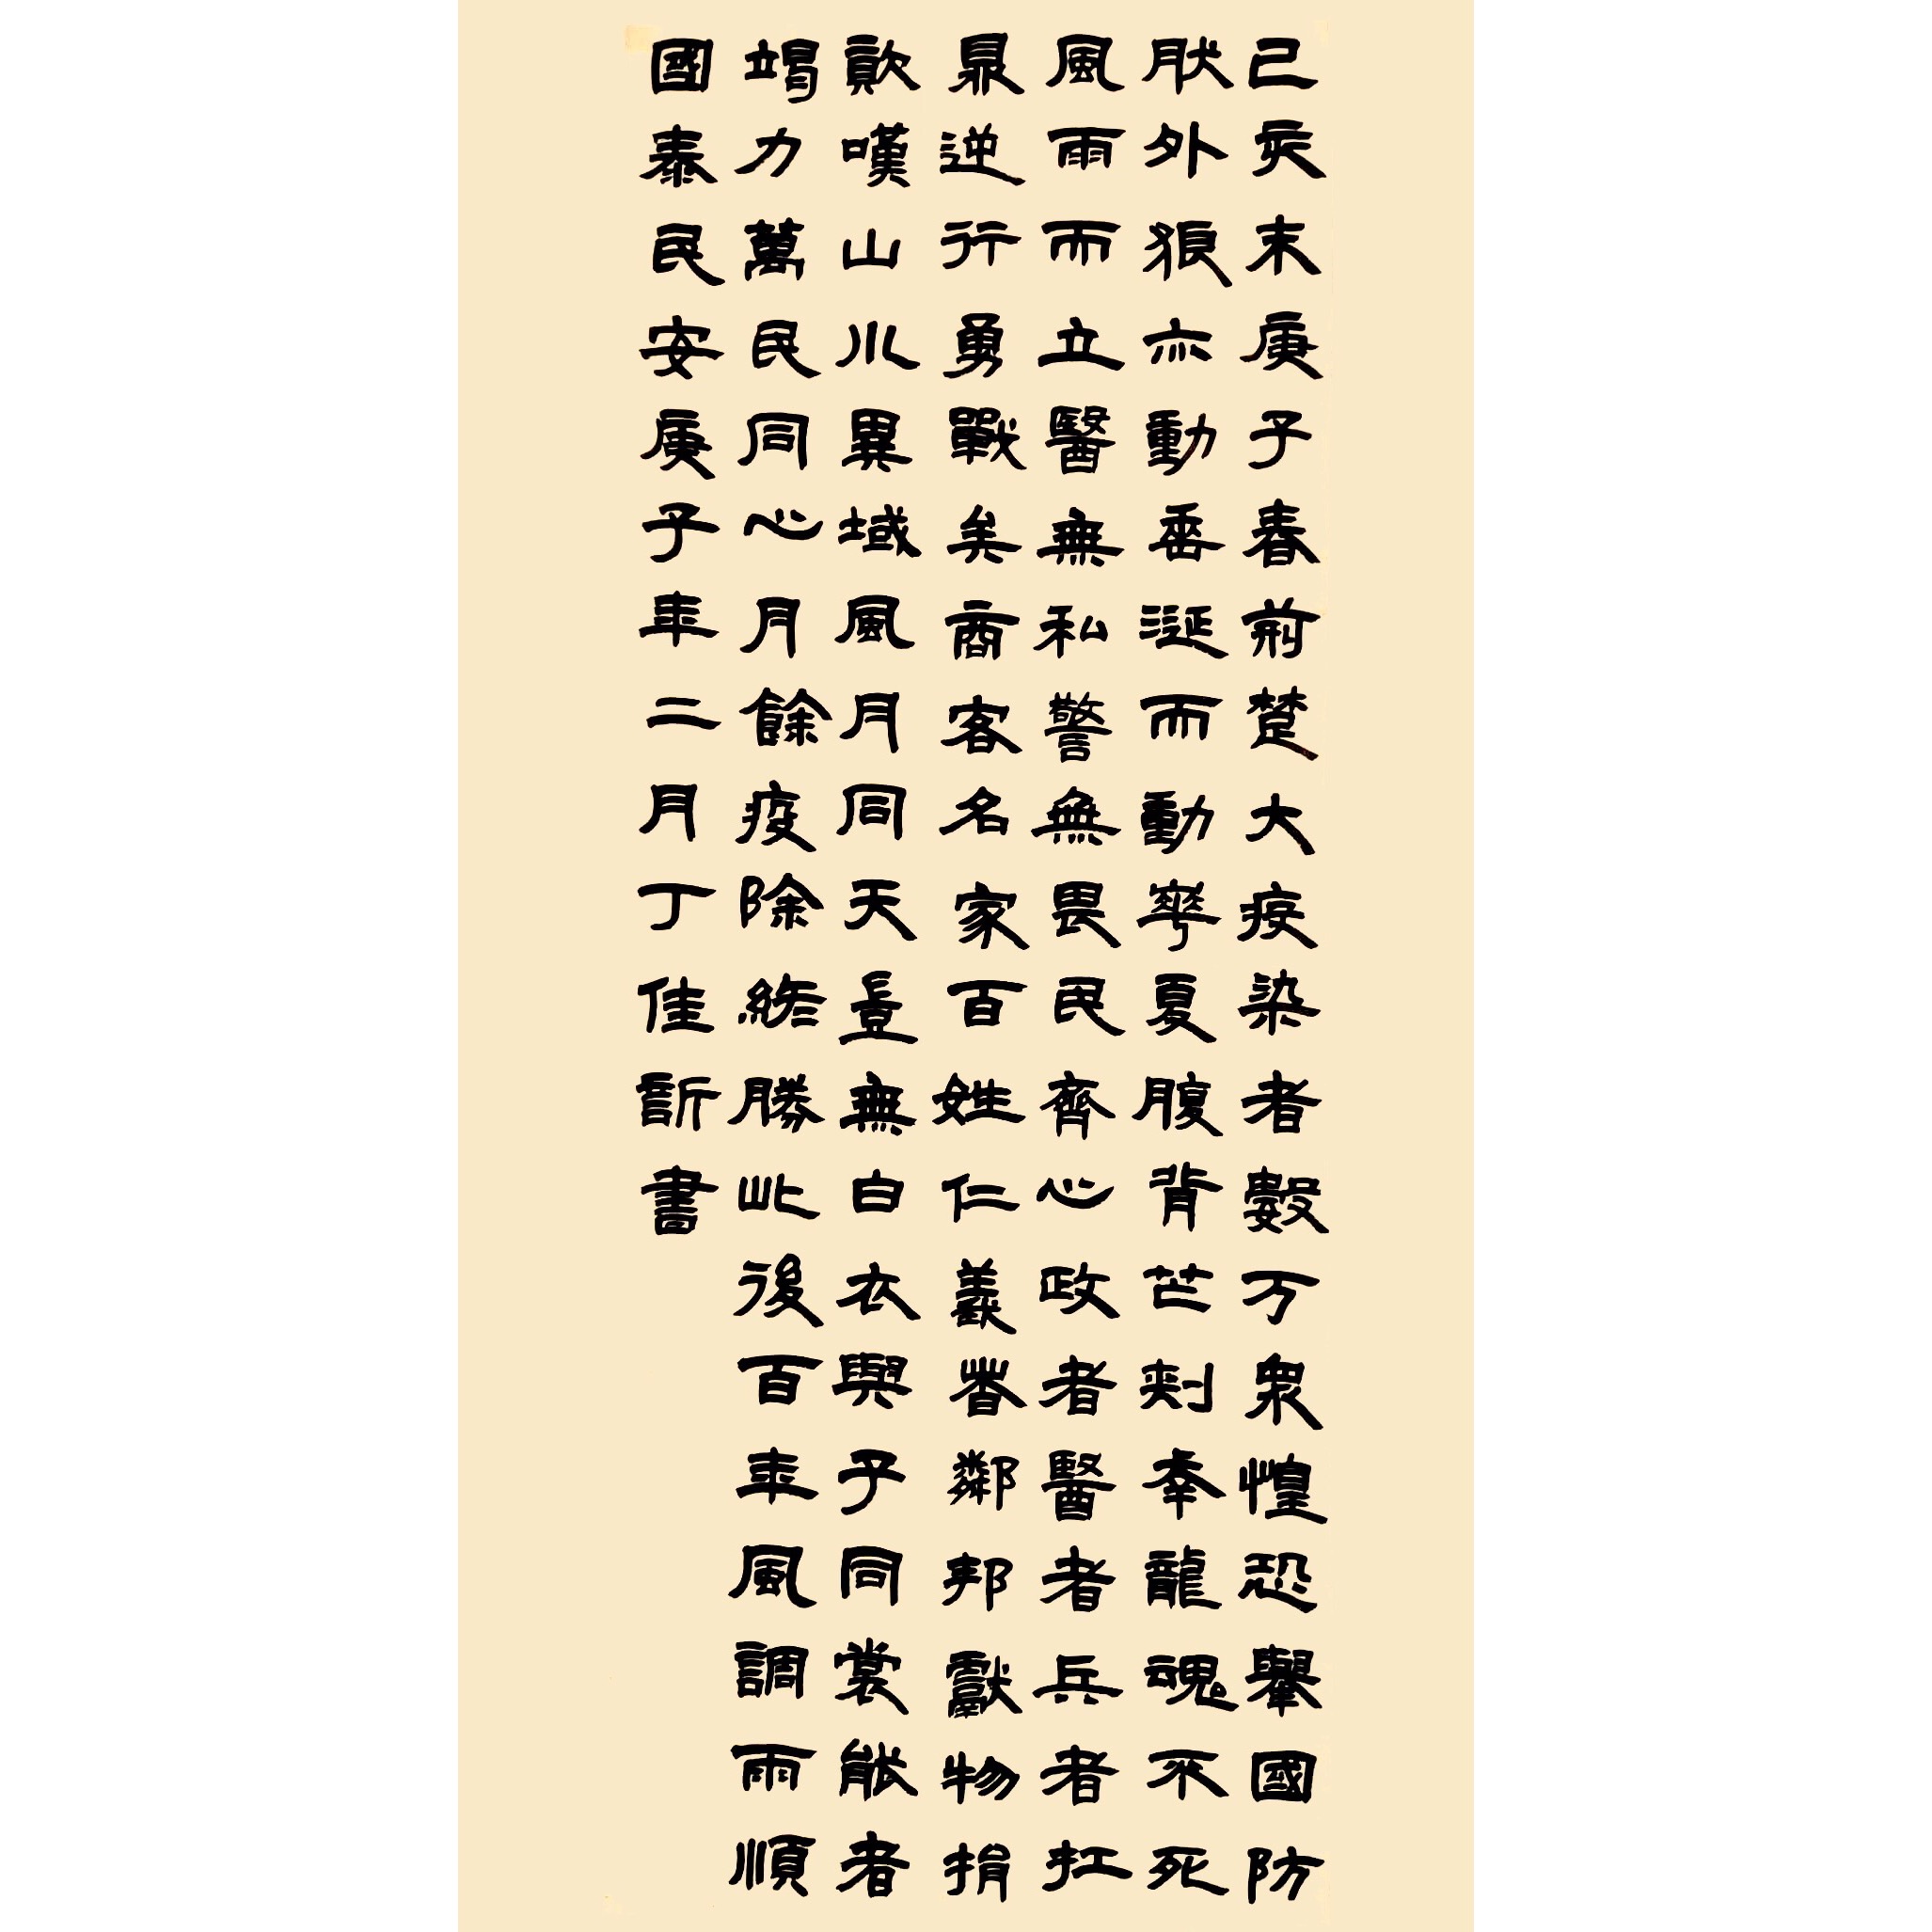 己亥末庚子春荊楚大疫染者數万衆惶恐舉國防
肰外狼亦動垂涎而動華夏腹背芒刺幸龍魂不死
風雨而立醫無私警無畏民齊心政者醫者兵者扛
鼎逆行勇戰矣商客名家百姓仁義鄰邦獻物捐
款嘆山川異域風月同天豈無白衣與子同裳能者
竭力萬民同心月餘疫除終勝此後百年風調雨順
國泰民安庚子年二月丁佳訢書